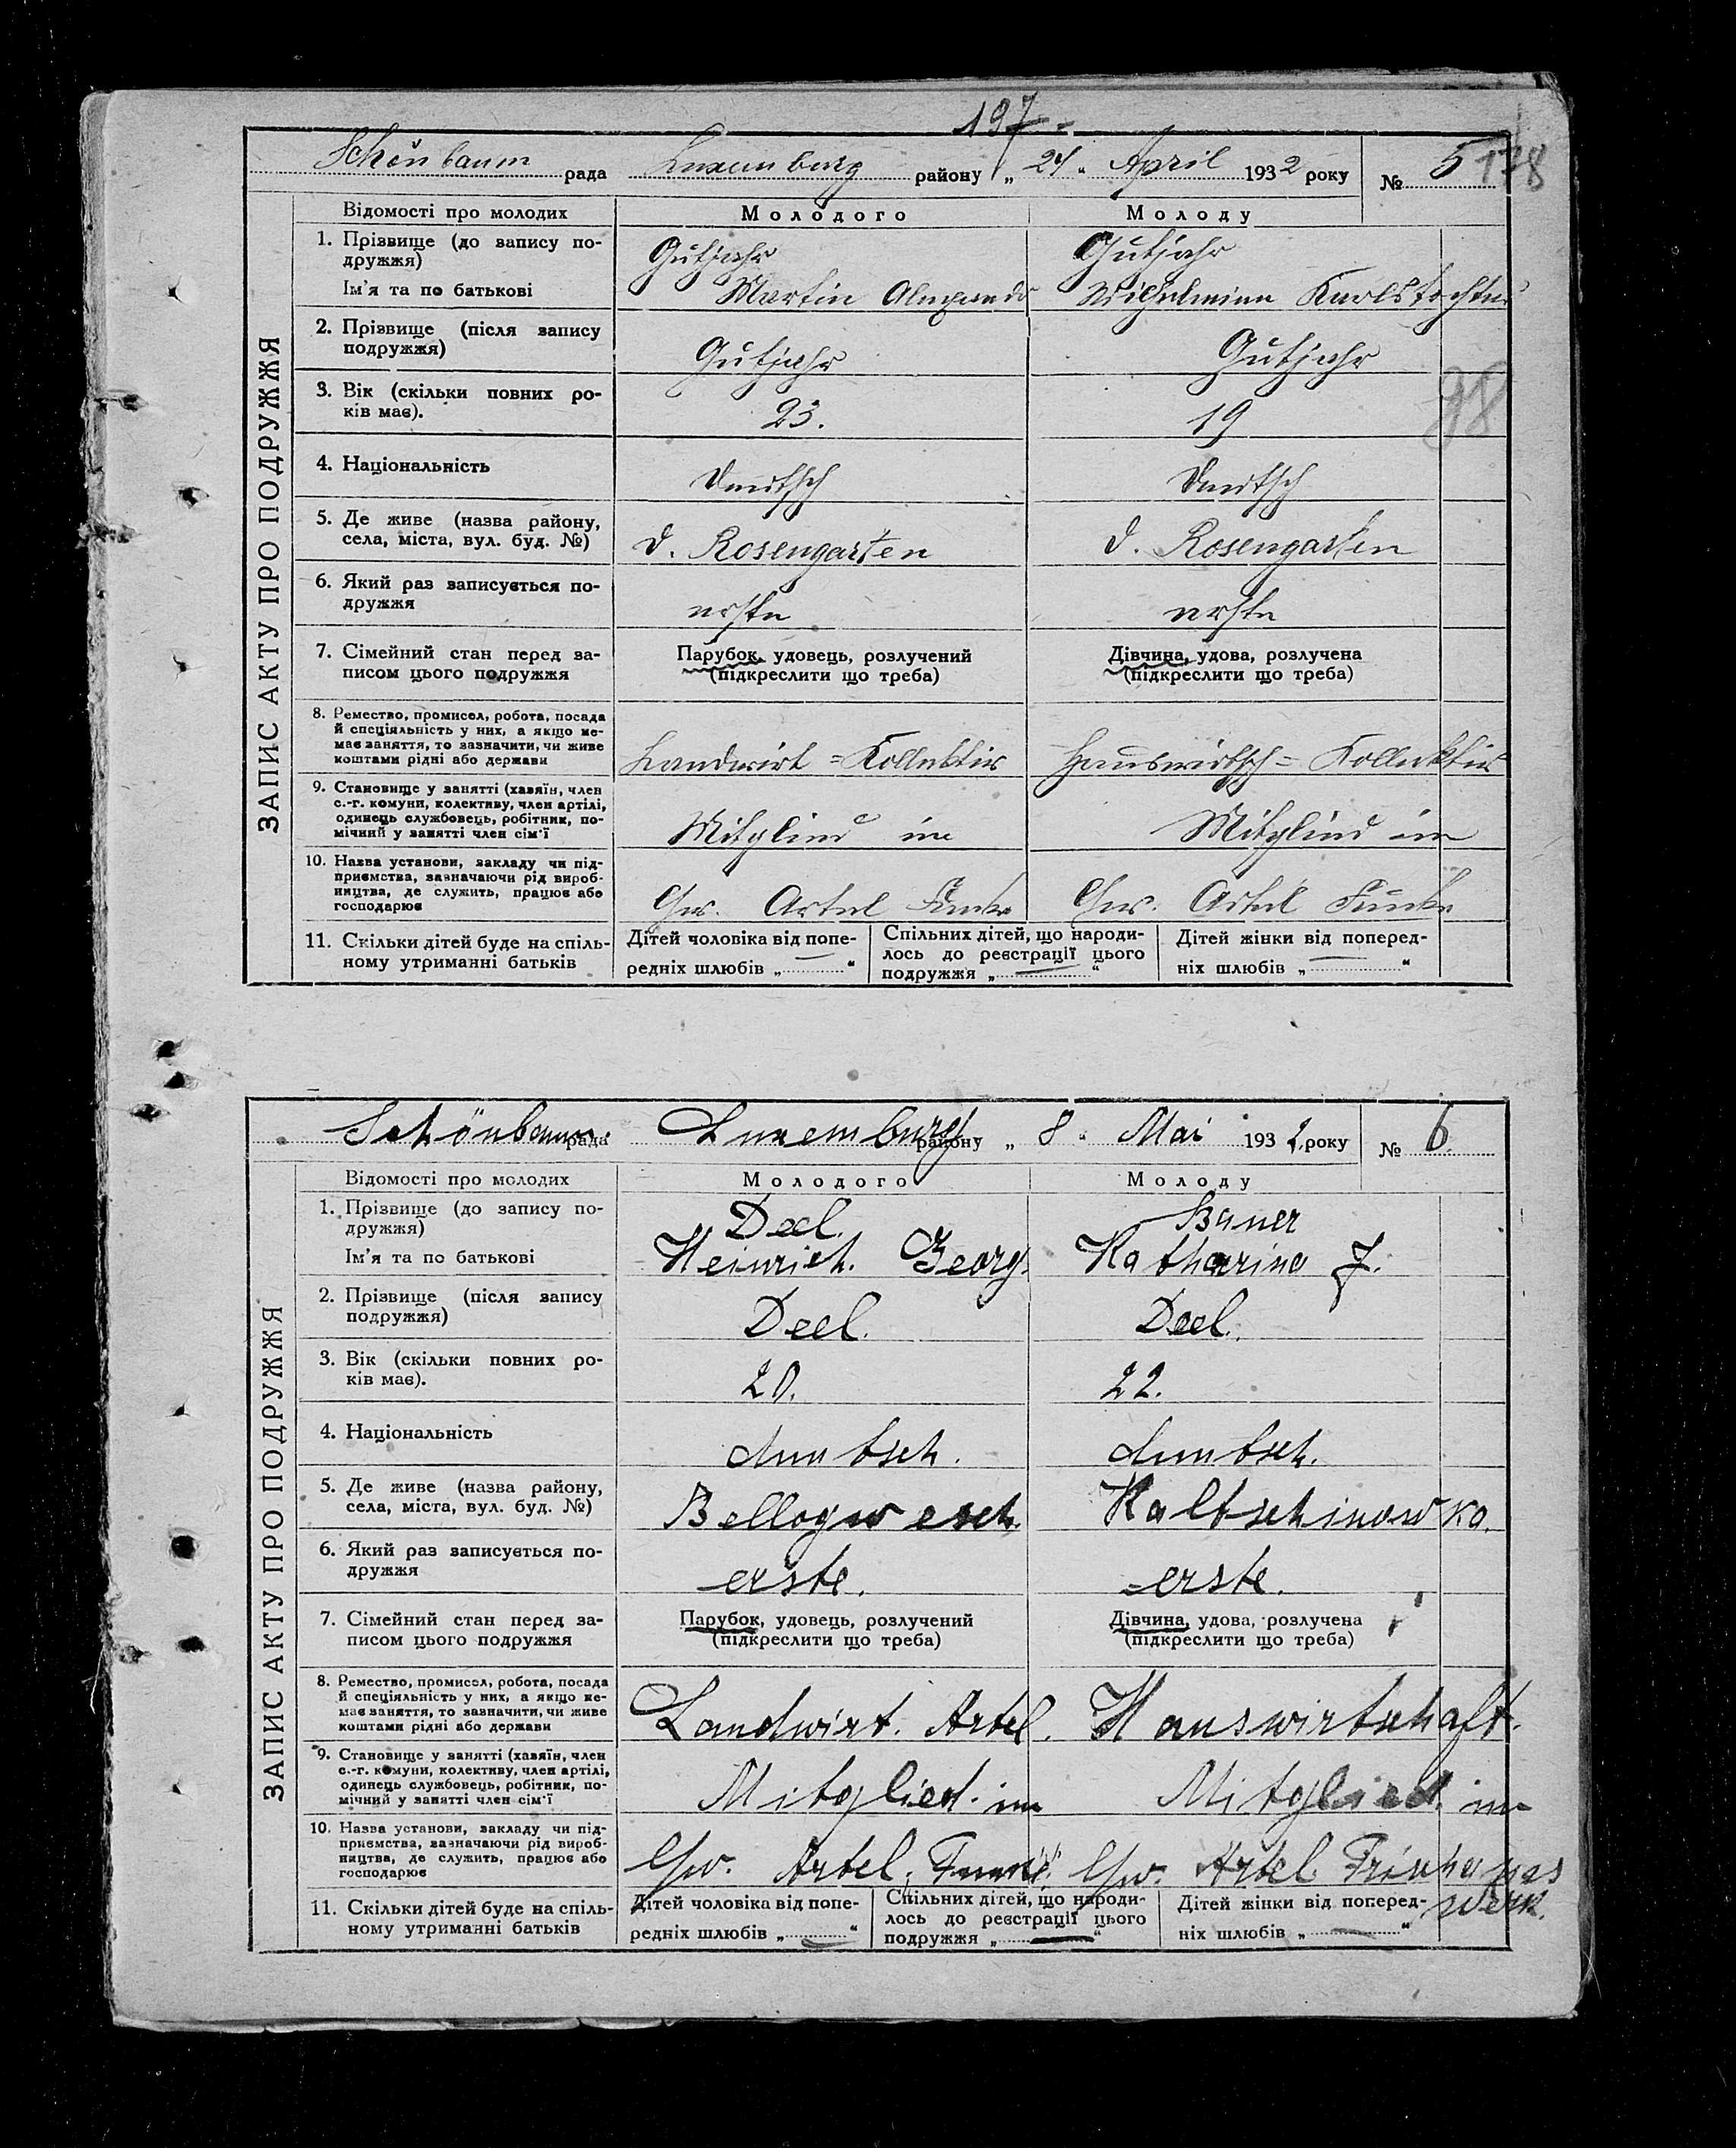 197
Schönbaum рада Luxemburg району „ 24 “ April 1932 року № 5 178
Відомості про молодих Молодого Молоду
ЗАПИС АКТУ ПРО ПОДРУЖЖЯ
1. Прізвище (до запису по-
дружжя) Gutjahr Gutjahr
Ім'я та по батькові Martin Wilhelmine Karlstochter
2. Прізвище (після запису
подружжя) Gutjahr Gutjahr
3. Вік (скільки повних ро-
ків має). 23. 19
98
4. Національність Deutsch Deutsch
5. Де живе (назва району,
села, міста, вул. буд. №) d. Rosengarten d. Rosengarten
6. Який раз записується по-
дружжя erste erste
7. Сімейний стан перед за- Парубок, удовець, розлучений Дівчина, удова, розлучена
писом цього подружжя (підкреслити що треба) (підкреслити що треба)
8. Ремество, промисел, робота, посада
й спеціяльність у них, а якщо не-
має заняття, то зазначити, чи живе
коштами рідні або держави Landwirt = Kollektiv Hauswirtsch = Kollektiv
9. Становище у занятті (хазяїн, член
с.-г. комуни, колективу, член артілі,
одинець службовець, робітник, по-
мічний у занятті член сім'ї Mitglied im Mitglied im
10. Назва установи, закладу чи під-
приємства, зазначаючи рід вироб-
ництва, де служить, працює або
господарює Gew. Artel Funke Gew. Artel Funke
11. Скільки дітей буде на спіль- Дітей чоловіка від попе- Спільних дітей, що народи- Дітей жінки від поперед-
ному утриманні батьків редніх шлюбів „ — “ лось до реєстрації цього ніх шлюбів „ — “
подружжя „ — “
Schönbaum рада Luxemburg району „ 8 “ Mai 1932 року № 6.
Відомості про молодих Молодого Молоду
ЗАПИС АКТУ ПРО ПОДРУЖЖЯ
1. Прізвище (до запису по-
дружжя) Deel. Bauer
Ім'я та по батькові Heinrich. Georg. Katharina J.
2. Прізвище (після запису
подружжя) Deel. Deel.
3. Вік (скільки повних ро-
ків має). 20. 22.
4. Національність deutsch. deutsch.
5. Де живе (назва району,
села, міста, вул. буд. №) Bellogwesch. Kaltschinowka.
6. Який раз записується по-
дружжя erste. erste.
7. Сімейний стан перед за- Парубок, удовець, розлучений Дівчина, удова, розлучена
писом цього подружжя (підкреслити що треба) (підкреслити що треба)
8. Ремество, промисел, робота, посада
й спеціяльність у них, а якщо не-
має заняття, то зазначити, чи живе
коштами рідні або держави Landwirt. Artel. Hauswirtschaft.
9. Становище у занятті (хазяїн, член
с.-г. комуни, колективу, член артілі,
одинець службовець, робітник, по-
мічний у занятті член сім'ї Mitglied. im Mitglied. im
10. Назва установи, закладу чи під-
приємства, зазначаючи рід вироб-
ництва, де служить, працює або
господарює Gew. Artel. Funke. Gew. Artel. Frisches
werk.
11. Скільки дітей буде на спіль- Дітей чоловіка від попе- Спільних дітей, що народи- Дітей жінки від поперед-
ному утриманні батьків редніх шлюбів „ — “ лось до реєстрації цього ніх шлюбів „ — “
подружжя „ — “